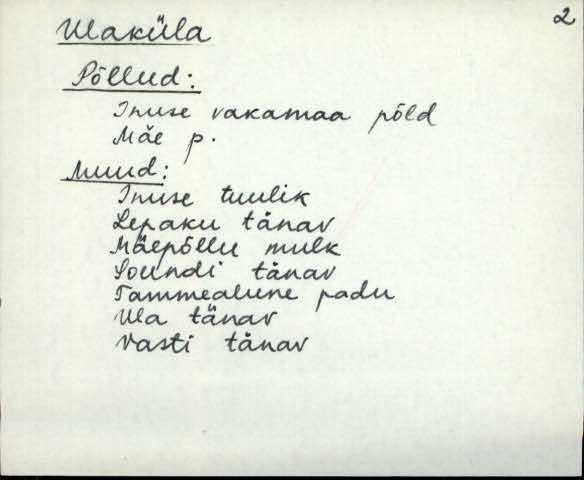 2
Ulaküla
Põllud:
Inuse vakamaa põld
Mäe p.
Muud:
Inuse tuulik
Lepaku tänav
Mäepõllu mulk
Soundi tänav
Tammealune padu
Ula tänav
Vasti tänav